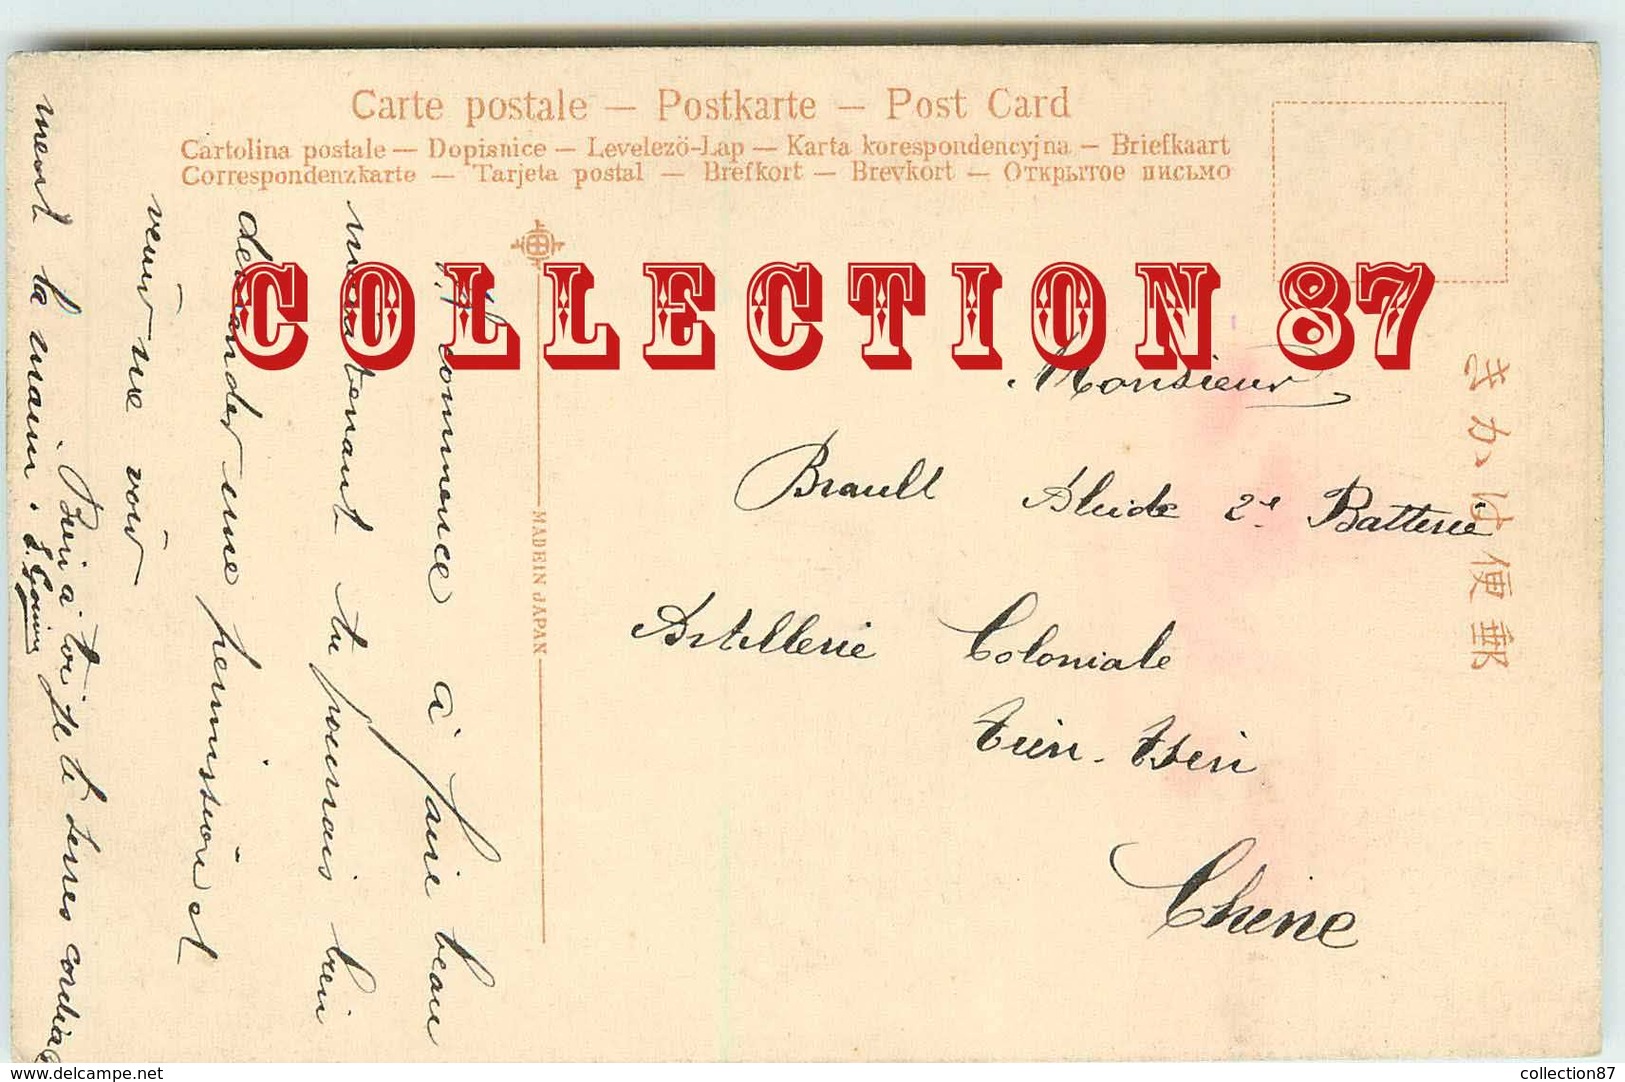 Carte postale — Postkarte — Post Card
Cartolina postale — Dopisnice — Levelezö-Lap — Karta korespondencyjna — Briefkaart
Correspondenzkarte — Tarjeta postal — Brefkort — Brevkort — Открытое письмо
COLLECTION 87
きかは便郵
MADE IN JAPAN
Monsieur
Brault Alcide 2e Batterie
Artillerie Coloniale
Tien-Tsin
Chine
Il commence à faire beau
maintenant tu pourrais bien
demander une permission et
venir me voir
Rien à toi je te serres cordiale
ment la main.
delcampe.net
collection87